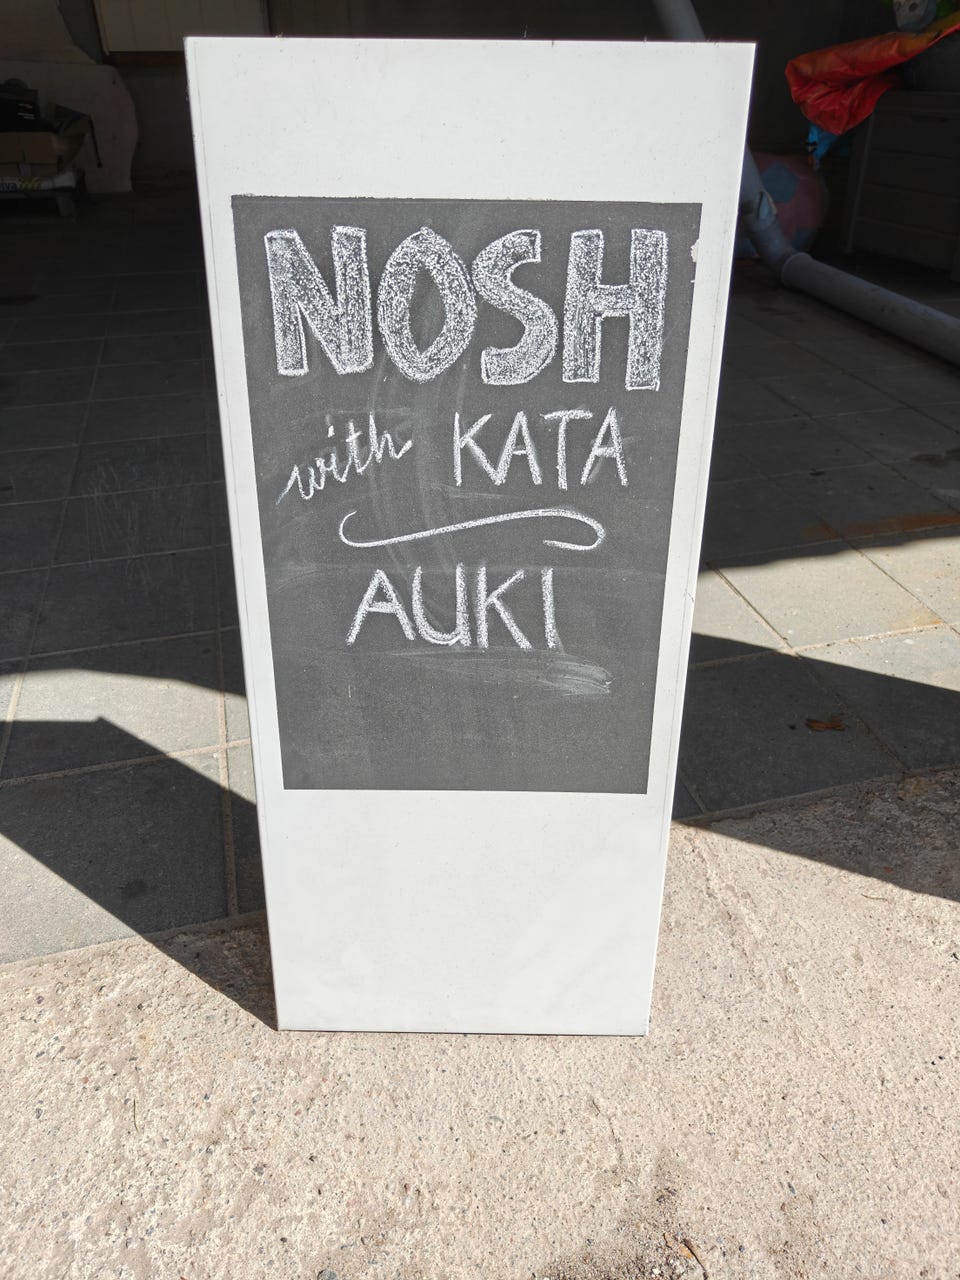 NOSH
with KATA
AUKI